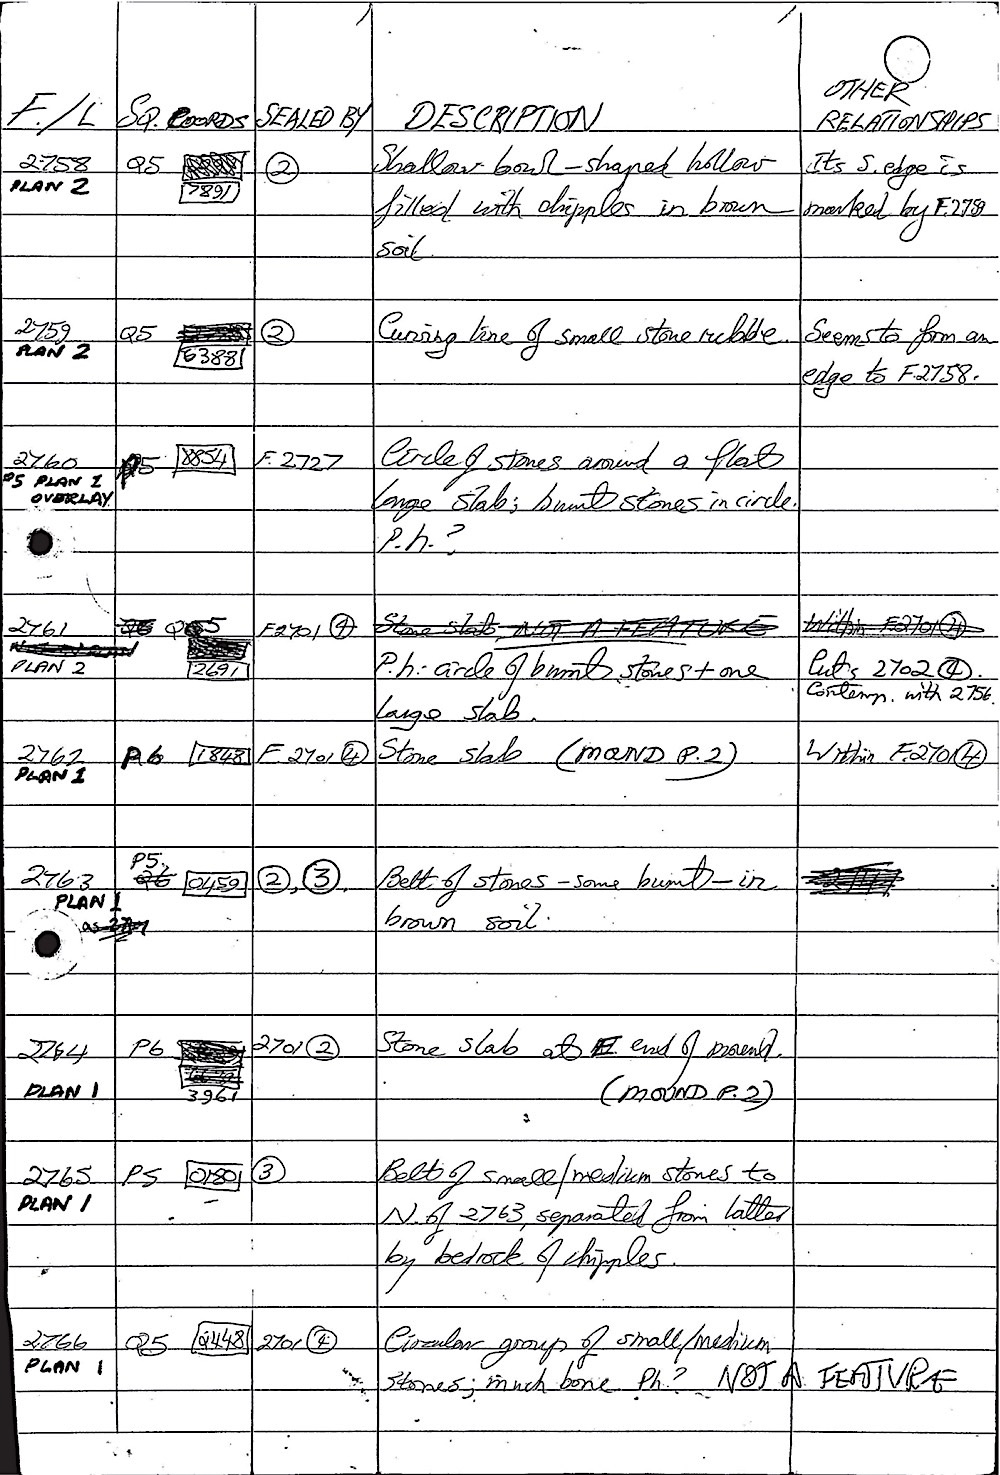 F./L SQ. COORDS SEALED BY DESCRIPTION OTHER RELATIONSHIPS
2758 Q5 ② Shallow bowl-shaped hollow Its S. edge is
PLAN 2 7891 filled with chipples in brown marked by F.2759
soil.
2759 Q5 ② Curving line of small stone rubble. Seems to form an
PLAN 2 6388 edge to F.2758.
2760 P5 8854 F.2727 Circle of stones around a flat
P5 PLAN 1 large slab; burnt stones in circle.
OVERLAY P.h.?
2761 Q5 F2701 ④ Stone slab, NOT A FEATURE Within F2701 ④
PLAN 2 2691 P.h.: circle of burnt stones + one Cuts 2702 ④.
large slab. Contemp. with 2756.
2762 P6 1848 F.2701 ④ Stone slab (MOUND P.2) Within F.2701 ④
PLAN 1
P5
2763 Q6 0459 ②, ③. Belt of stones - some burnt - in
PLAN 1 brown soil.
as
2764 P6 2701 ② Stone slab at E end of mound.
PLAN 1 3961 (MOUND P.2)
2765 P5 0180 ③ Belt of small/medium stones to
PLAN 1 N. of 2763, separated from latter
by bedrock of chipples.
2766 Q5 2448 2701 ④ Circular group of small/medium
PLAN 1 stones; much bone Ph? NOT A FEATURE